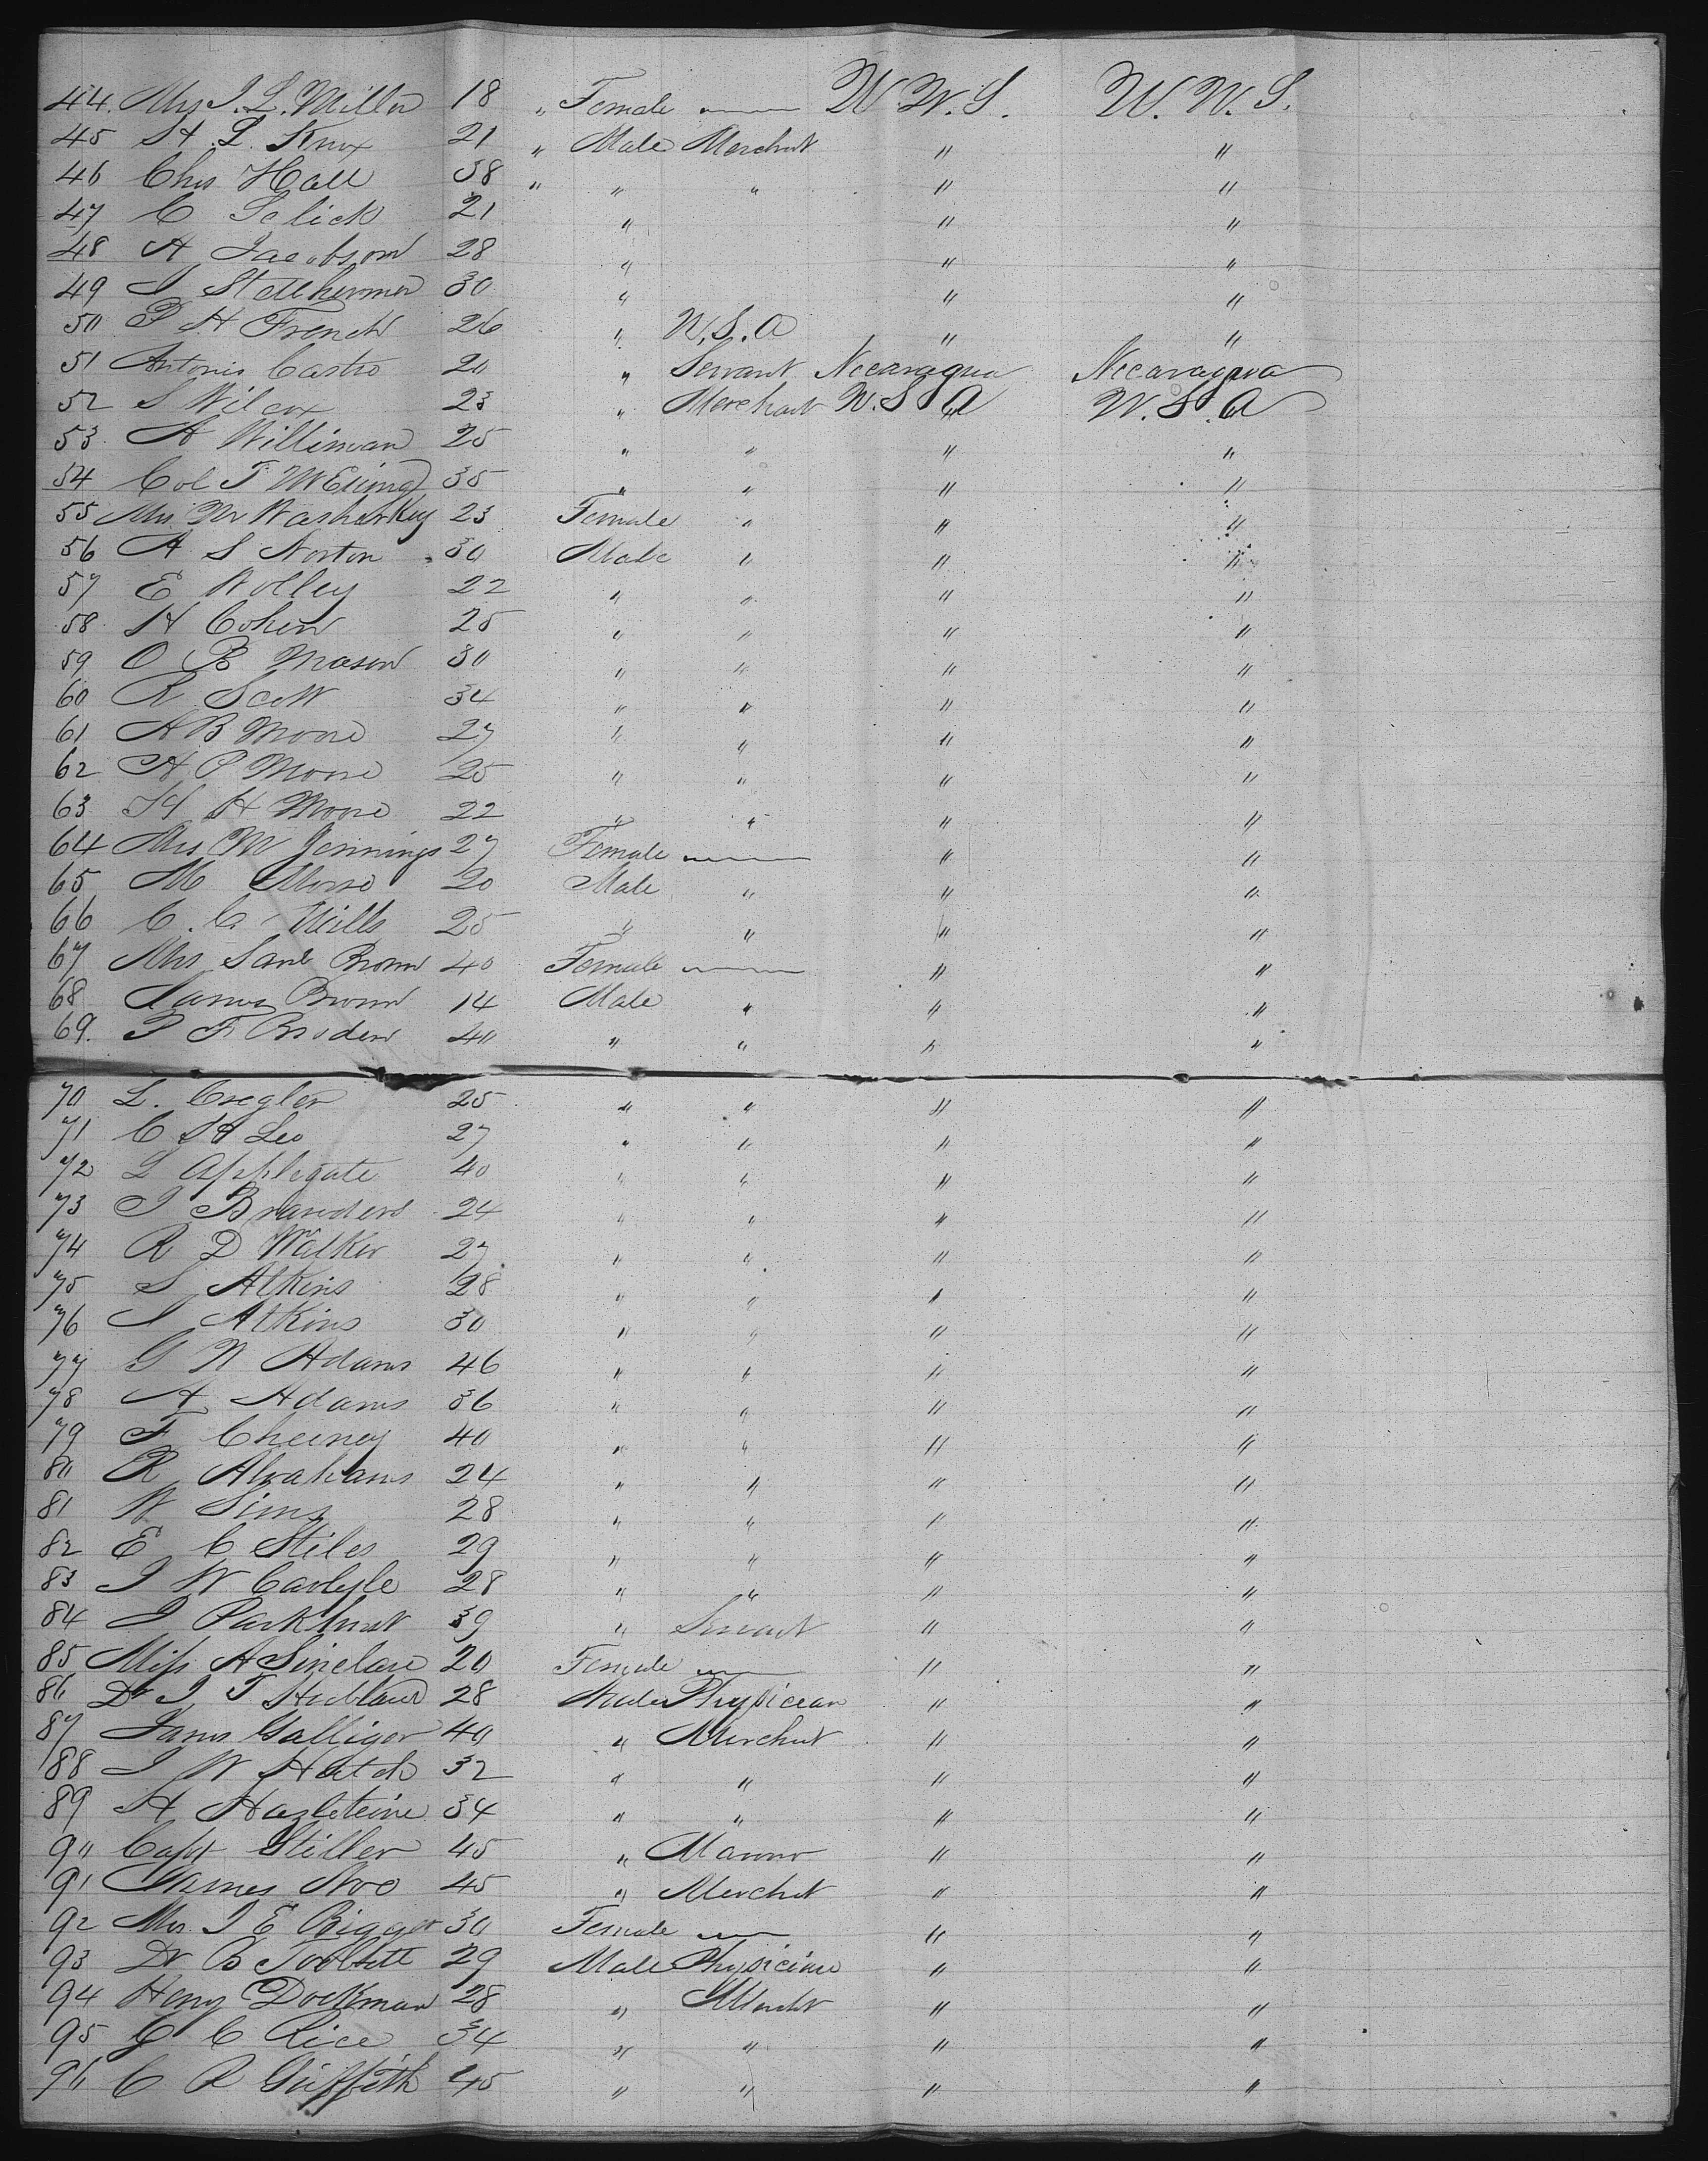 44. Mrs J. L. Miller 18 " Female U. S. U. S.
45 H. L. Knox 21 " Male Merchnt " "
46 Chs Hall 38 " " " " "
47 C Selick 21 " " "
48 A Jacobson 28 " " "
49 J 30 " " "
50 P H French 26 " U.S.A " "
51 Antonio Castro 20 " Servant Necaragua Necaragua
52 S Wilcox 23 " Merchant U.S A U.S.A
53. A Williman 25 " " " "
54 Col T 35 " " " "
55 Mrs M 23 Female " " "
56 A S Norton 30 Male " " "
57 E Wolley 22 " " " "
58 H Cohen 25 " " " "
59 O B Mason 30 " " " "
60 R Scott 34 " " " "
61 A B Moore 27 " " " "
62 H P Moore 25 " " " "
63 H H Moore 22 " " " "
64 Mrs M Jennings 27 Female " "
65 M Morse 20 Male " " "
66 C. C. Mills 25 " " " "
67 Mrs Brown 40 Female " "
68 James Brown 14 Male " " "
69. P F 40 " " " "
70 L. Cregler 25 " " " "
71 C H Leo 27 " " " "
72 L Applegate 40 " " " "
73 J 24 " " " "
74 R D Walker 27 " " " "
75 S Atkins 28 " " " "
76 J Atkins 30 " " " "
77 G W Adams 46 " " " "
78 A Adams 36 " " " "
79 F Cheeney 40 " " " "
80 R Abrahams 24 " " " "
81 W Sims 28 " " " "
82 E C Stiles 29 " " " "
83 J W Carlyle 28 " " " "
84 J Parkhurst 39 " Servant " "
85 Miss A Sinclare 20 Female " "
86 Dr J T 28 Male Physician " "
87 James Galligor 40 " Merchnt " "
88 J W Hatch 32 " " " "
89 H Hazletine 34 " " " "
90 Capt Stiller 45 " " "
91 James 45 " Merchnt " "
92 Mrs. J E Bigger 30 Female " "
93 Dr B 29 Male Physician " "
94 Heny Dockman 28 " " "
95 G C Rice 34 " " " "
96 C R Griffith 45 " " " "